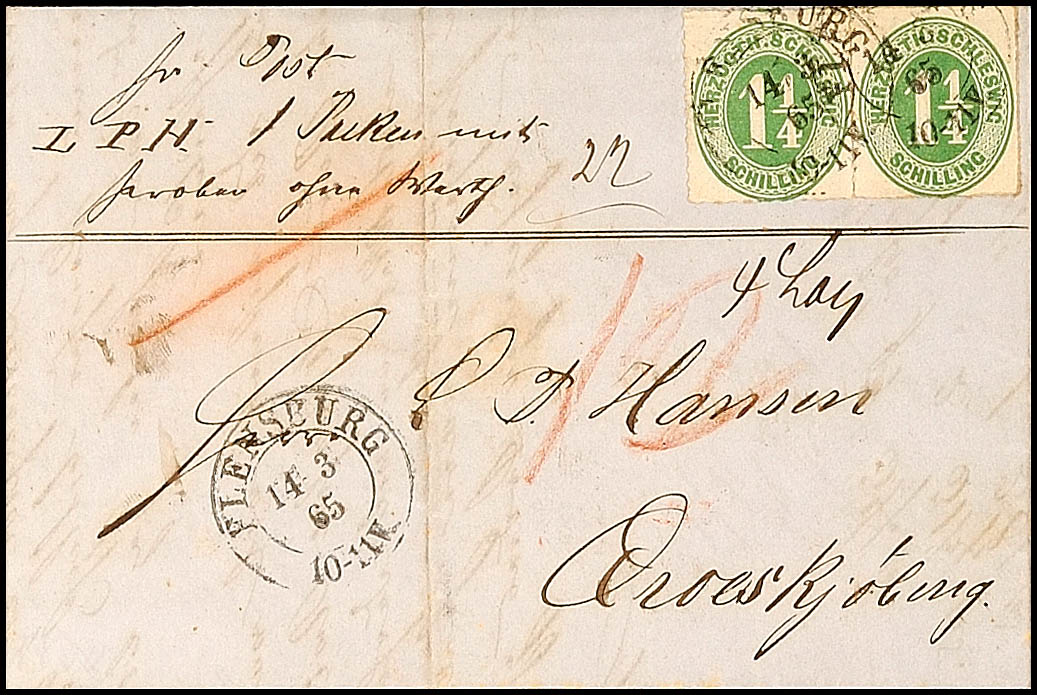 pr Post
L P H. 1 Packen mit
Proben ohne Werth.
22
HERZOGTH. SCHLESWIG
1¼
SCHILLING
HERZOGTH. SCHLESWIG
1¼
SCHILLING
14 3
65
10-11V.
65
10-11V
4 Loth
12
P. Hansen
FLENSBURG
14 3
65
10-11V.
Aroeskjöbing.